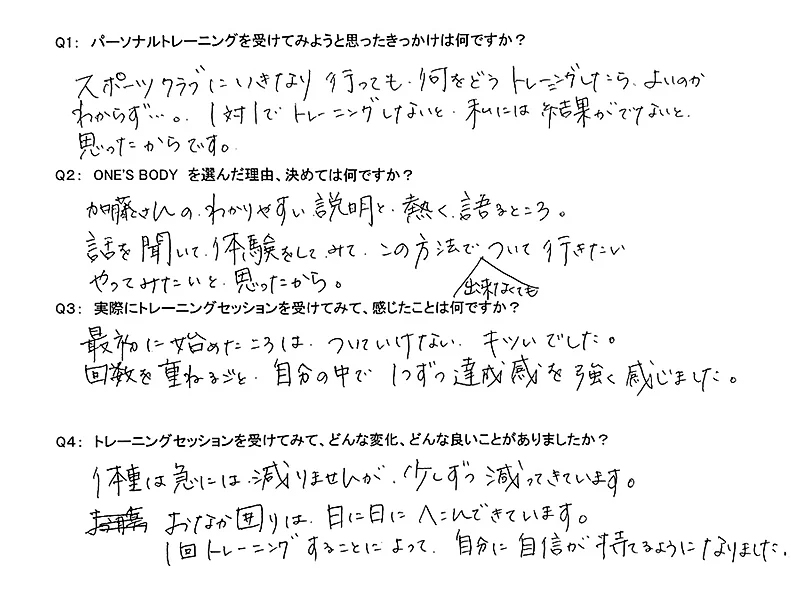 Q1： パーソナルトレーニングを受けてみようと思ったきっかけは何ですか？
スポーツクラブにいきなり行っても、何をどうトレーニングしたら、よいのか
わからず…。1対1でトレーニングしないと、私には結果がでないと、
思ったからです。
Q2： ONE'S BODY を選んだ理由、決めては何ですか？
加藤さんの、わかりやすい説明と、熱く、語るところ。
話を聞いて、体験をしてみて、この方法でついて行きたい
出来なくても
やってみたいと、思ったから。
Q3： 実際にトレーニングセッションを受けてみて、感じたことは何ですか？
最初に始めたころは、ついていけない、キツいでした。
回数を重ねるごと、自分の中で1つずつ達成感を強く感じました。
Q4： トレーニングセッションを受けてみて、どんな変化、どんな良いことがありましたか？
体重は急には、減りませんが、少しずつ減ってきています。
おなか囲りは、日に日にへこんできています。
1回トレーニングすることによって、自分に自信が持てるようになりました。